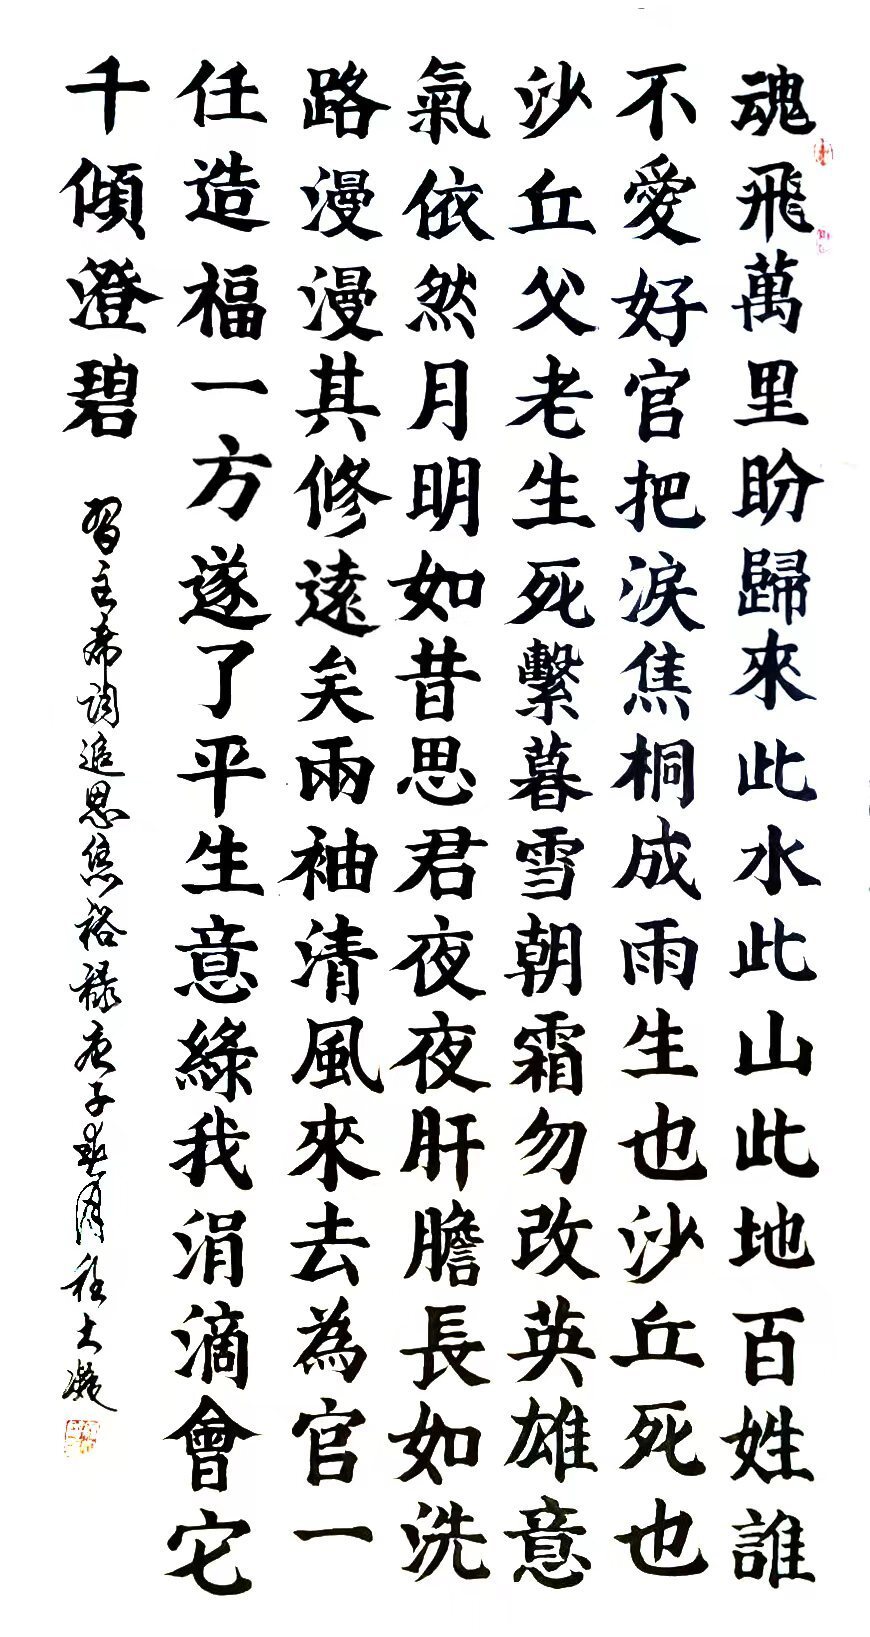 魂飛萬里盼歸來此水此山此地百姓誰
不愛好官把淚焦桐成雨生也沙丘死也
沙丘父老生死繫暮雪朝霜勿改英雄意
氣依然月明如昔思君夜夜肝膽長如洗
路漫漫其修遠矣兩袖清風來去為官一
任造福一方遂了平生意綠我涓滴會它
千傾澄碧
習主席詞追思焦裕禄庚子春月